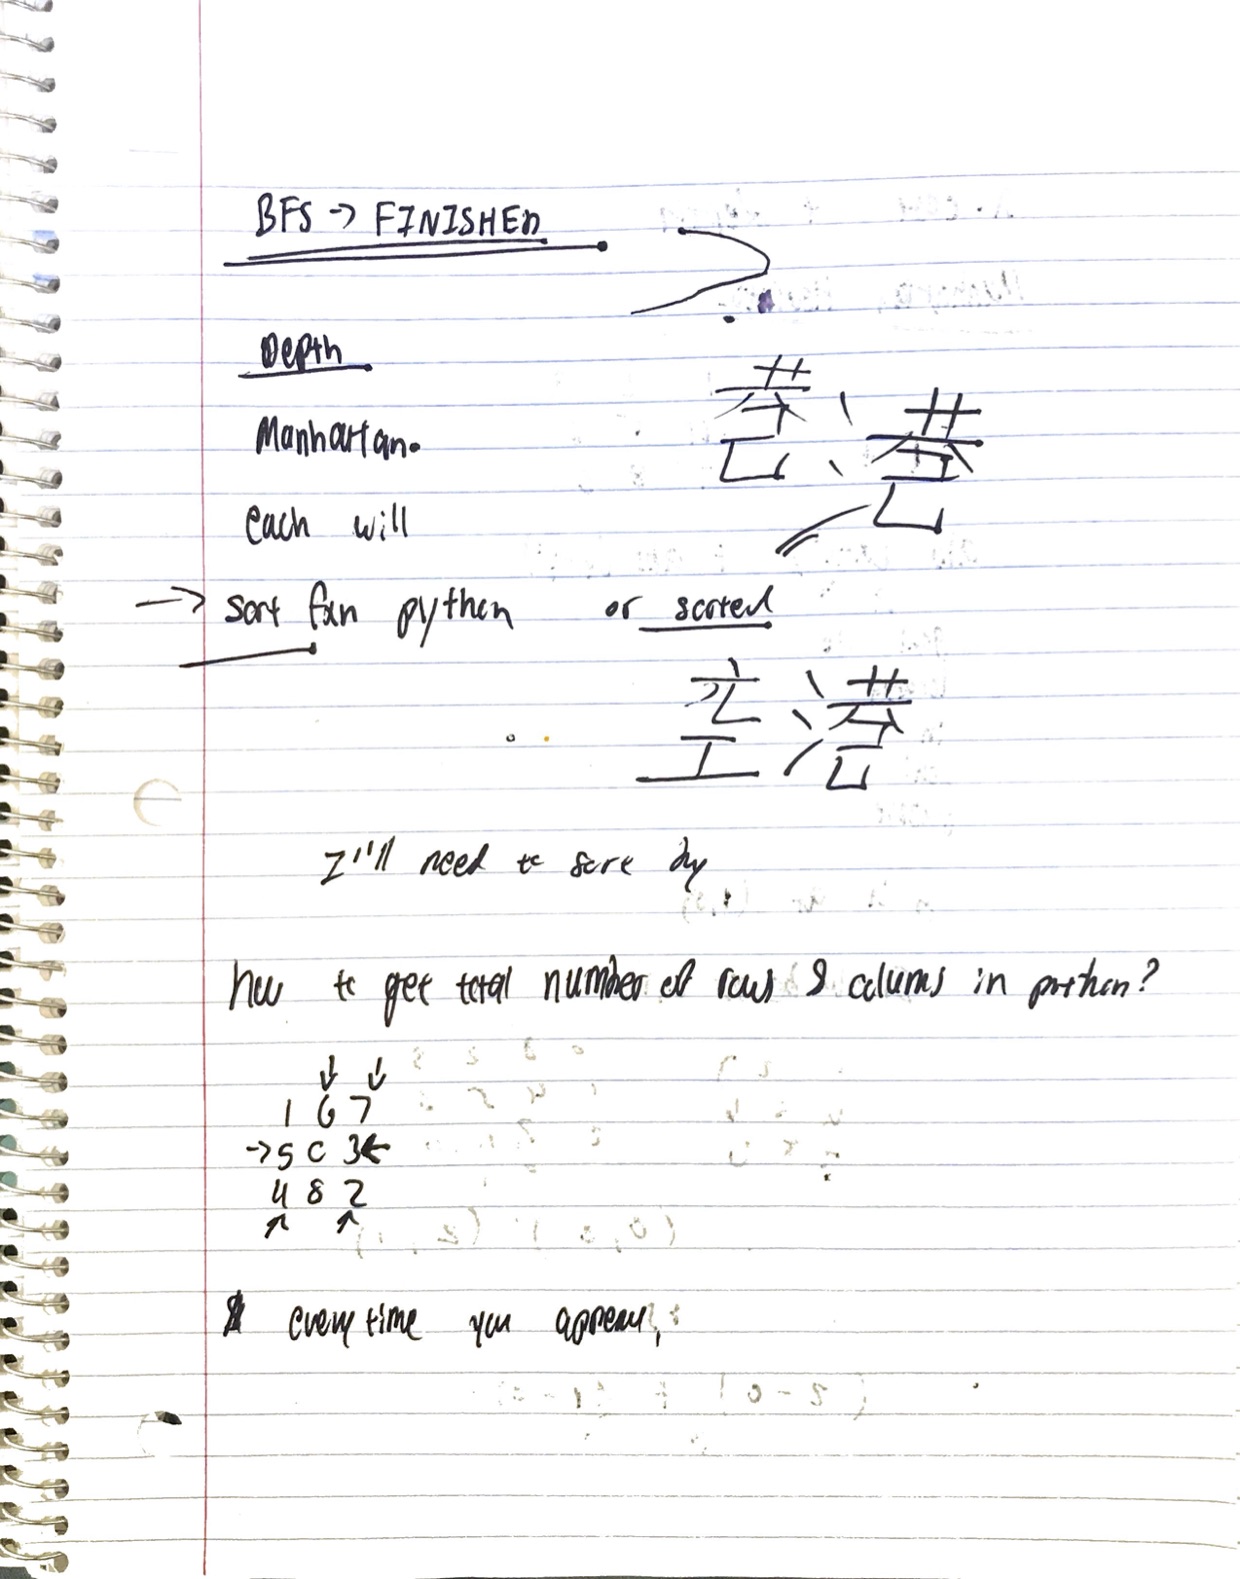 BFS → FINISHED
Depth
Manhattan.
each will
→ sort fxn python or sorted
I''ll need to sort by
how to get total number of rows & colums in python?
↓ ↓
1 6 7
→ 5 0 3 ←
4 8 2
↑ ↑
everytime you append,